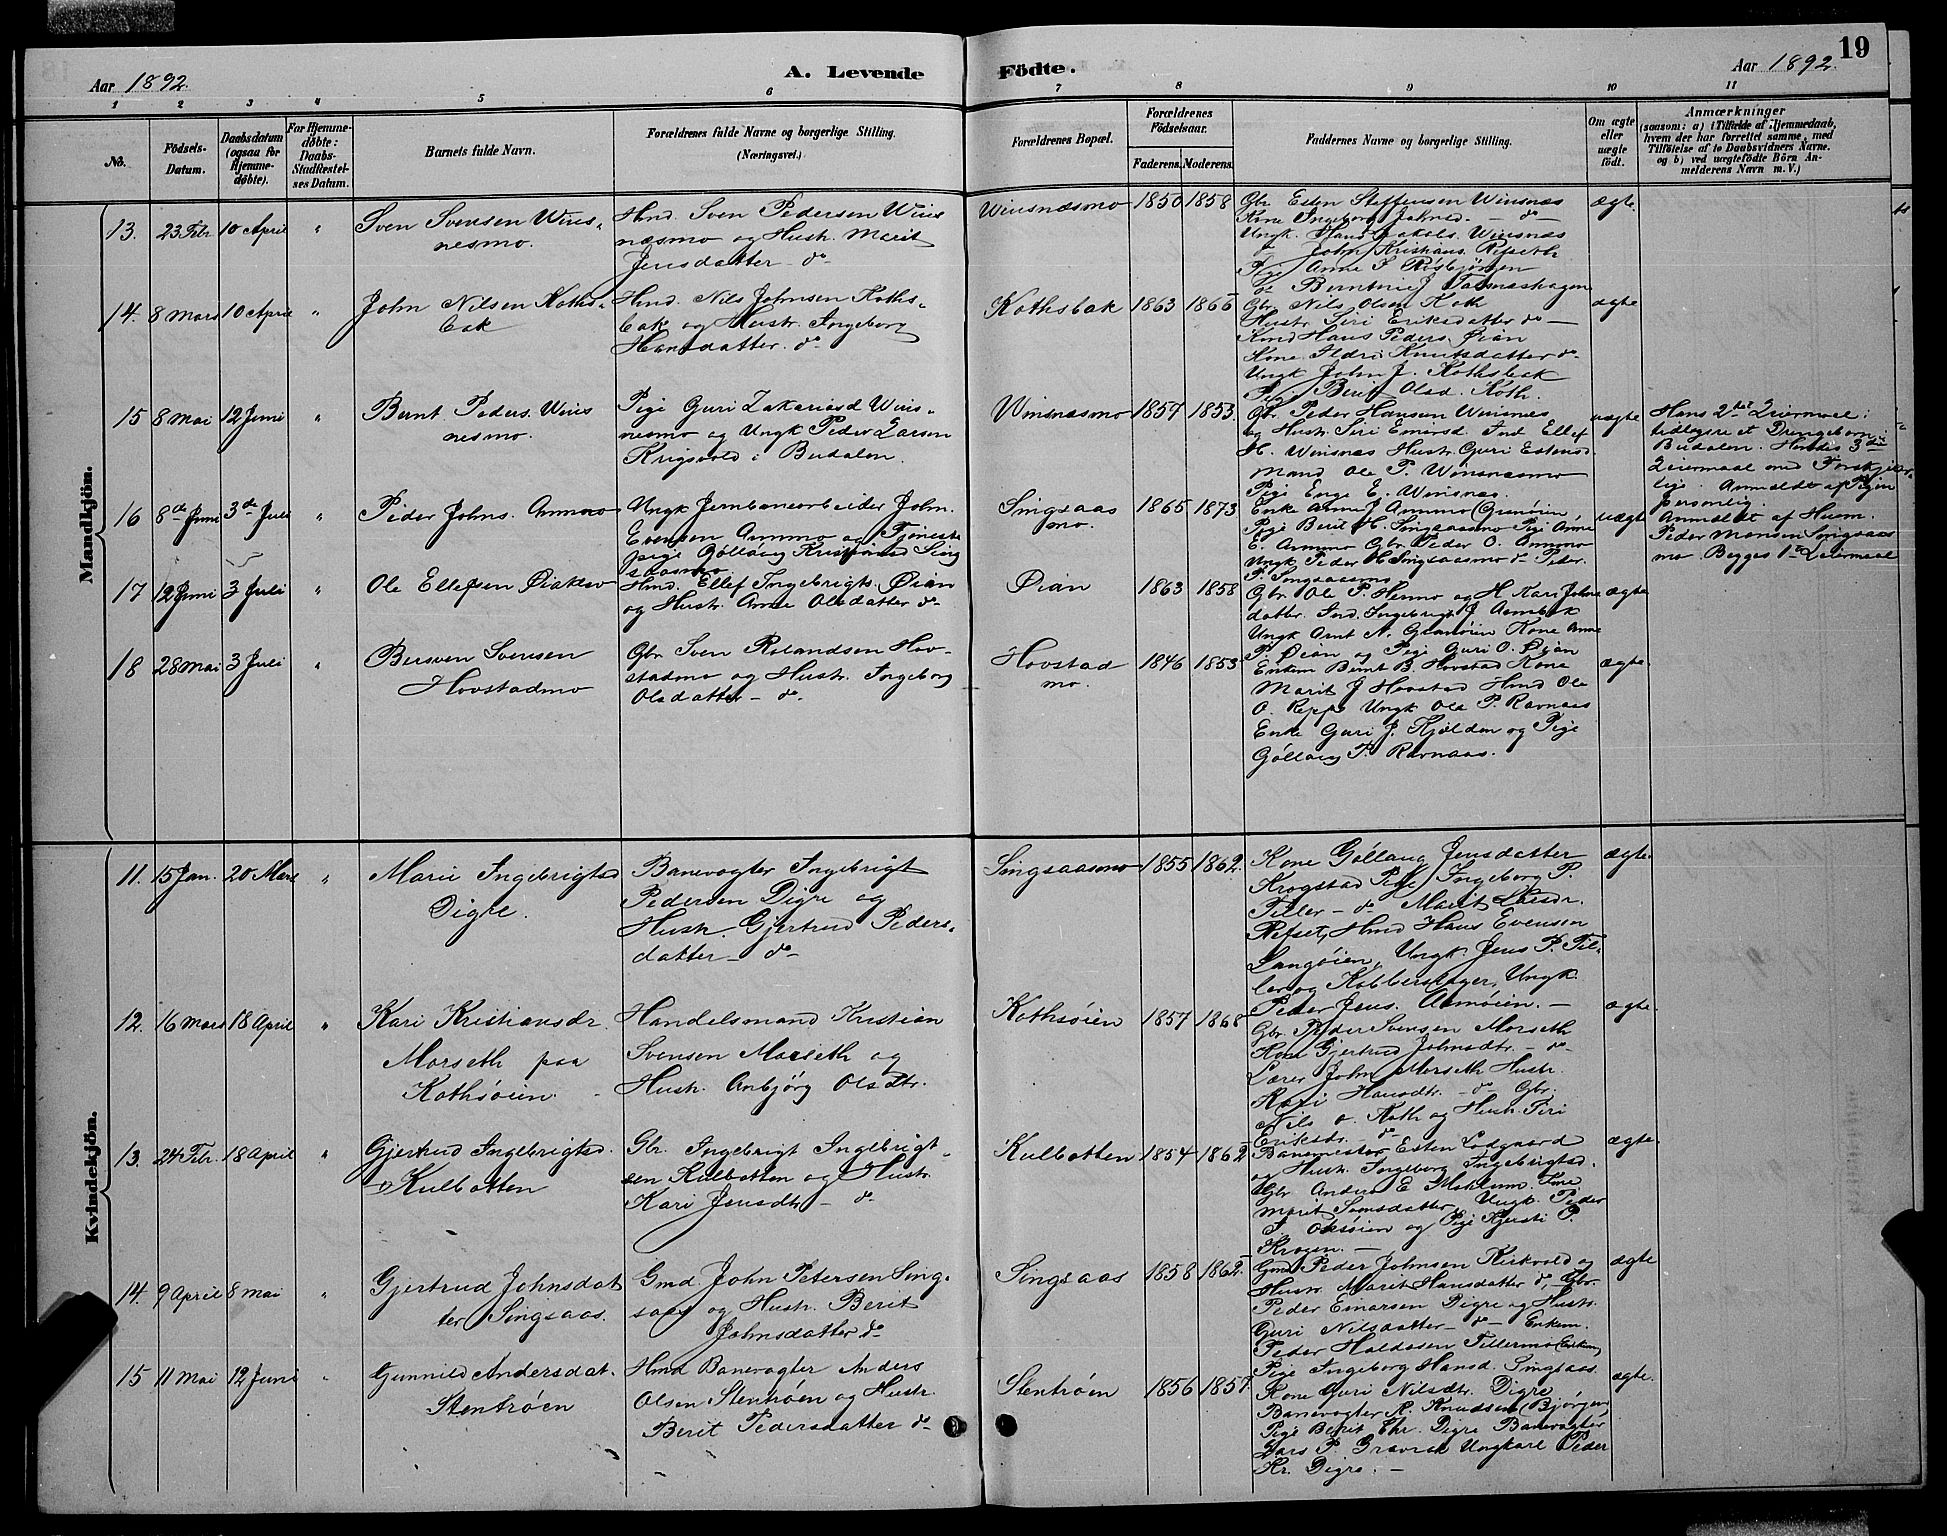 19
Aar 1892.
A. Levende Födte.
Aar 1892.
1 2 3 4 5 6 7 8 9 10 11
No.
Födsels-
Datum.
Daabsdatum
(ogsaa for
Hjemme-
døbte).
For Hjemme-
døbte:
Daabs-
Stadfæstel-
ses Datum.
Barnets fulde Navn.
Forældrenes fulde Navne og borgerlige Stilling.
(Næringsvei.)
Forældrenes Bopæl.
Forældrenes
Födselsaar.
Faderens. Moderens.
Faddernes Navne og borgerlige Stilling.
Om ægte
eller
uægte
födt.
Anmærkninger
(saasom: a) i Tilfælde af Hjemmedaab,
hvem der har forrettet samme, med
Tilföielse af to Daabsvidners Navne.
og b) ved uægtefödte Börn An-
melderens Navn m. V.)
Mandkjön.
13. 23 Febr. 10 April "
Sven Svensen Wins-
nesmo.
Hmd. Sven Pedersen Wins
næsmo og Hustr. Marit
Jensdatter - do
Winsnæsmo 1850 1858
Gbr. Esten Steffensen Winsnæs
Kone Ingeborg Johnsd. - do -
Ungk. Hans Winsnæs
John Kristians. Refseth
Pige Anne
ægte.
14. 8 Mars 10 April "
John Nilsen Koths-
bak
Hmd. Nils Johnsen Koths-
bak og Hustr. Ingeborg
Hansdatter. do
Kothsbak 1863 1865
Gbr. Nils Olsen Koth
Hustr. Siri Eriksdatter do -
Hmd Hans Peders. Øian
Kone Ildri Knutsdatter do
Ungk John J. Kothsbak
Pige Berit Olsd. Koth.
ægte
15 8 Mai 12 Juni "
Bernt Peders. Wins
nesmo.
Pige Guri Zakariasd Wins-
nesmo og Ungk Peder Larsen
Krigsvold i Budalen.
Winsnæsmo 1857 1853.
Gbr. Peder Hansen Winsnes
og Hustr. Siri Ind. Ellef
H. Winsnæs Hustr. Guri Estensd.
Mand Ole P. Winsnæsmo
Pige Enge E. Winsnæs.
uægte
Hans 2det Leiermaal:
tidligere et Drengebarn i
Budalen. Hendes 3die
Leiermaal med Forskjel-
lige. Anmeldt af Pigen
personlig.
16 8de Juni 3de Juli "
Peder Johns. Ammo
Ungk Jernbanearbeider John
Evensen Ammo og Tjeneste
pige Gölloug Kristiansd Sing
saasmo
Singsaas
mo. 1865 1873
Enke Anne J Ammo (Granöien)
Pige Berit H. Singsaasmo Pige Anne
E. Ammo Gbr. Peder O. Ammo
Ungk Peder H Singsaasmo Peder
P. Singsaasmo
uægte
Anmeldt af Husm.
Peder Monsen Singsaas
mo. Begges 1ste Leiermaal
17 12 Juni 3 Juli "
Ole Ellefsen Øiaksmo
Hmd. Ellef Ingebrigts. Øian
og Hustr. Anne Olsdatter do
Øian 1863 1858
Gbr. Ole P. Hemmo og H. Kari Johns
datter. Ind. Ingebrigt J Aambak
Ungk Arnt N. Granöien Kone Anne
P. Øian og Pige Guri O. Øian
ægte
18 28 Mai 3 Juli "
Bersven Svensen
Hovstadmo
Gbr. Sven Rolandsen Hov-
stadmo og Hustr. Ingeborg
Olsdatter - do
Hovstad
mo. 1846 1853
Enkem. Bernt B. Hovstad Kone
Marit J Hovstad Hmd Ole
O. Reppe Ungk Ole P. Ravnaas
Enke Guri J. Kjelden og Pige
Göllaug P. Ravnaas.
ægte.
Kvindekjön.
11. 15 Jan. 20 Mars "
Marie Ingebrigtsd
Digre.
Banevogter Ingebrigt
Pedersen Digre og
Hustr. Gjertrud Peders-
datter - do -
Singsaasmo 1855 1862.
Kone Göllaug Jensdatter
Krogstad Pige Ingeborg P.
Tiller - do Marit Larsdr.
Refset, Hmd Hans Evensen
Langöien, Ungk. Jens P. Til-
ler og Kobberslager, Ungk.
Peder Jens. Aamöien. -
ægte.
12. 16 Mars 18 April "
Kari Kristiansdr.
Morseth paa
Kothsöien.
Handelsmand Kristian
Svensen Morseth og
Hustr. Anbjörg Olsdtr.
Kothsöien 1857 1868
Gbr. Peder Svensen Morseth
Kone Gjertrud Johnsdtr. - do -
Lærer John Morseth Hustr.
Kari Hansdtr. - do - Gbr.
Nils O. Koth og Hustr. Siri
Eriksdr. do
ægte.
13. 24 Febr. 18 April "
Gjertrud Ingebrigtsd.
Kulbotten
Gbr. Ingebrigt Ingebrigt-
sen Kulbotten og Hustr.
Kari Jensdtr - do
Kulbotten 1854 1862
Banemester Esten Lodgaard
og Hustr. Ingeborg Ingebrigtsd.
Gbr Anders E
Marit Svensdatter, Ungk. Peder
J. Oksöien og Pige Kjersti P.
Krogen. -
ægte.
14. 9 April 8 Mai "
Gjertrud Johnsdat
ter Singsaas.
Gmd. John Petersen Sing-
saas og Hustr. Berit
Johnsdatter do
Singsaas 1858 1862.
Gmd Peder Johnsen Kirkvold og
Hustr Marit Hansdatter do, Gbr.
Peder Einarsen Digre og Hustr.
Guri Nilsdatter - do - Enkem.
Peder Haldosen Tillermo (Enkem)
Pige Ingeborg Hansd. Singsaas
ægte
15 11 Mai 12 Juni
Gunnild Andersdat.
Stenröen
Hmd Banevogter Anders
Olsen Stenröen og Hustr.
Berit Pedersdatter do
Stenröen 1856 1857
Kone Guri Nilsdtr. Digre
Banevogter A. Knudsen (Bjørgen)
Pige Berit Chr. Digre Banevogter
Lars P. Gravrak Ungkarl Peder
Kr. Digre. -
ægte.